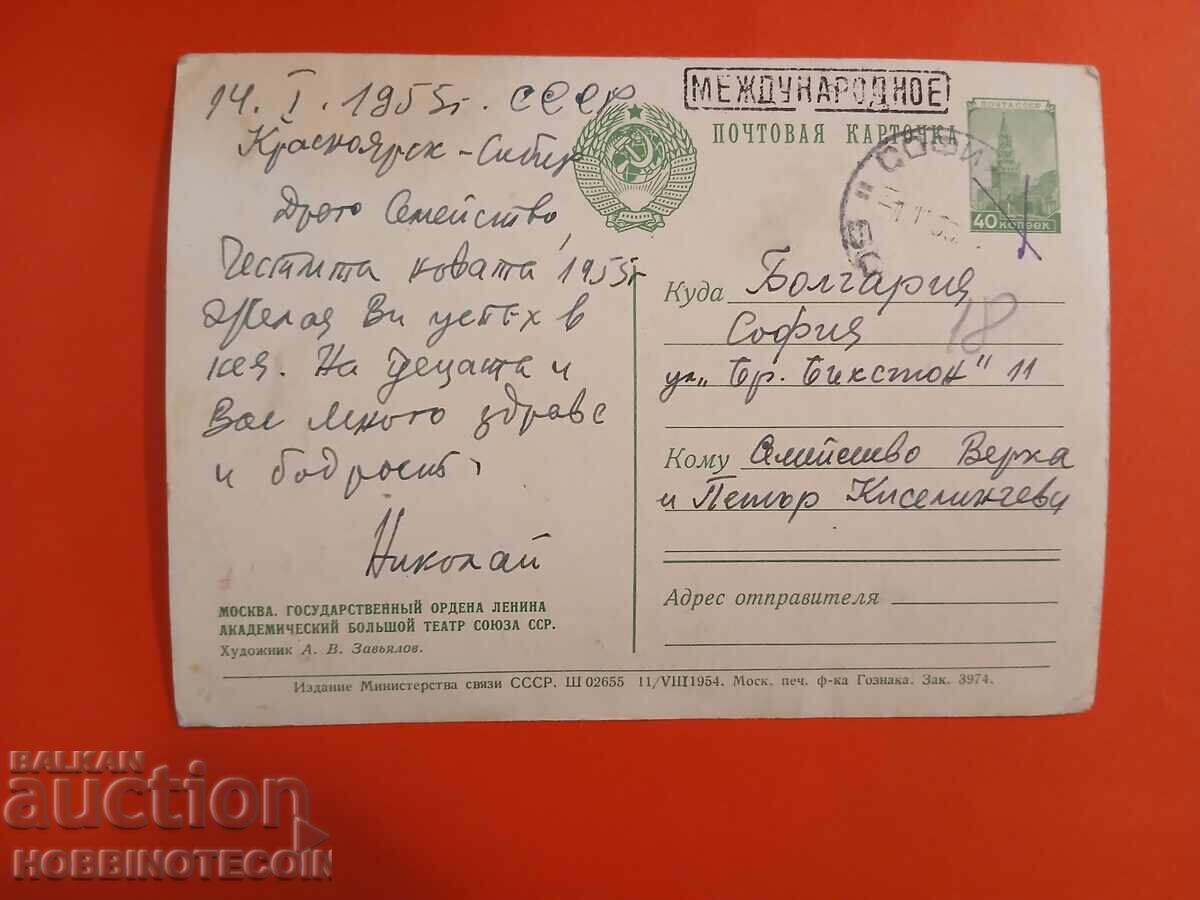 14. I. 1955г. СССР
Красноярск – Сибир
Драго Семейство,
Честита новата 1955г
Желая Ви успех в
нея. На децата и
Вас много здраве
и бодрост.
Николай
МОСКВА. ГОСУДАРСТВЕННЫЙ ОРДЕНА ЛЕНИНА
АКАДЕМИЧЕСКИЙ БОЛЬШОЙ ТЕАТР СОЮЗА ССР.
Художник А. В. Завьялов.
МЕЖДУНАРОДНОЕ
ПОЧТОВАЯ КАРТОЧКА
ПОЧТА СССР
40 КОПЕЕК
СОФИЯ
Куда Болгария
София
18
ул. „Бр. Бикстон" 11
Кому Семейство Верка
и Петър Киселинчеви
Адрес отправителя
Издание Министерства связи СССР. Ш 02655 11/VIII 1954. Моск. печ. ф-ка Гознака. Зак. 3974.
BALKAN
auction
HOBBINOTECOIN